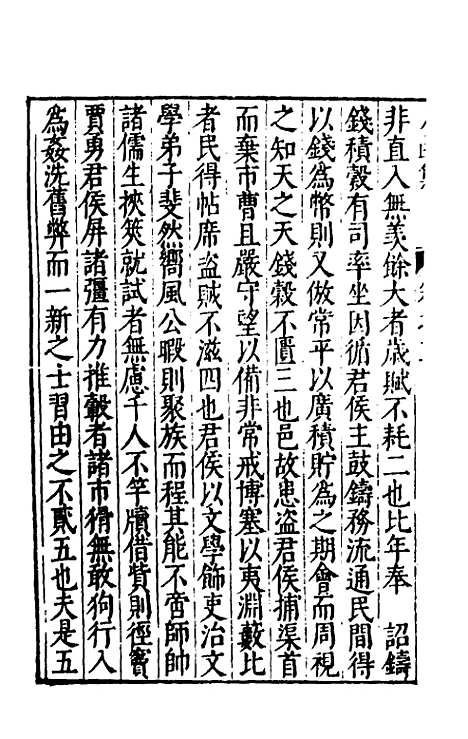 非直入無羨餘大者歲賦不耗二也比年奉　詔鑄
錢積穀有司率坐因循君侯主鼓鑄務流通民間得
以錢爲幣則又倣常平以廣積貯爲之期會而周視
之知天之天錢穀不匱三也邑故患盜君侯捕渠首
而棄市曹且嚴守望以備非常戒博塞以夷淵藪比
者民得帖席盜賊不滋四也君侯以文學飾吏治文
學弟子斐然嚮風公暇則聚族而程其能不啻師帥
諸儒生挾筴就試者無慮千人不竿牘借貲則徑竇
賈勇君侯屏諸彊有力推轂者諸市猾無敢狗行人
爲姦洗舊弊而一新之士習由之不貳五也夫是五